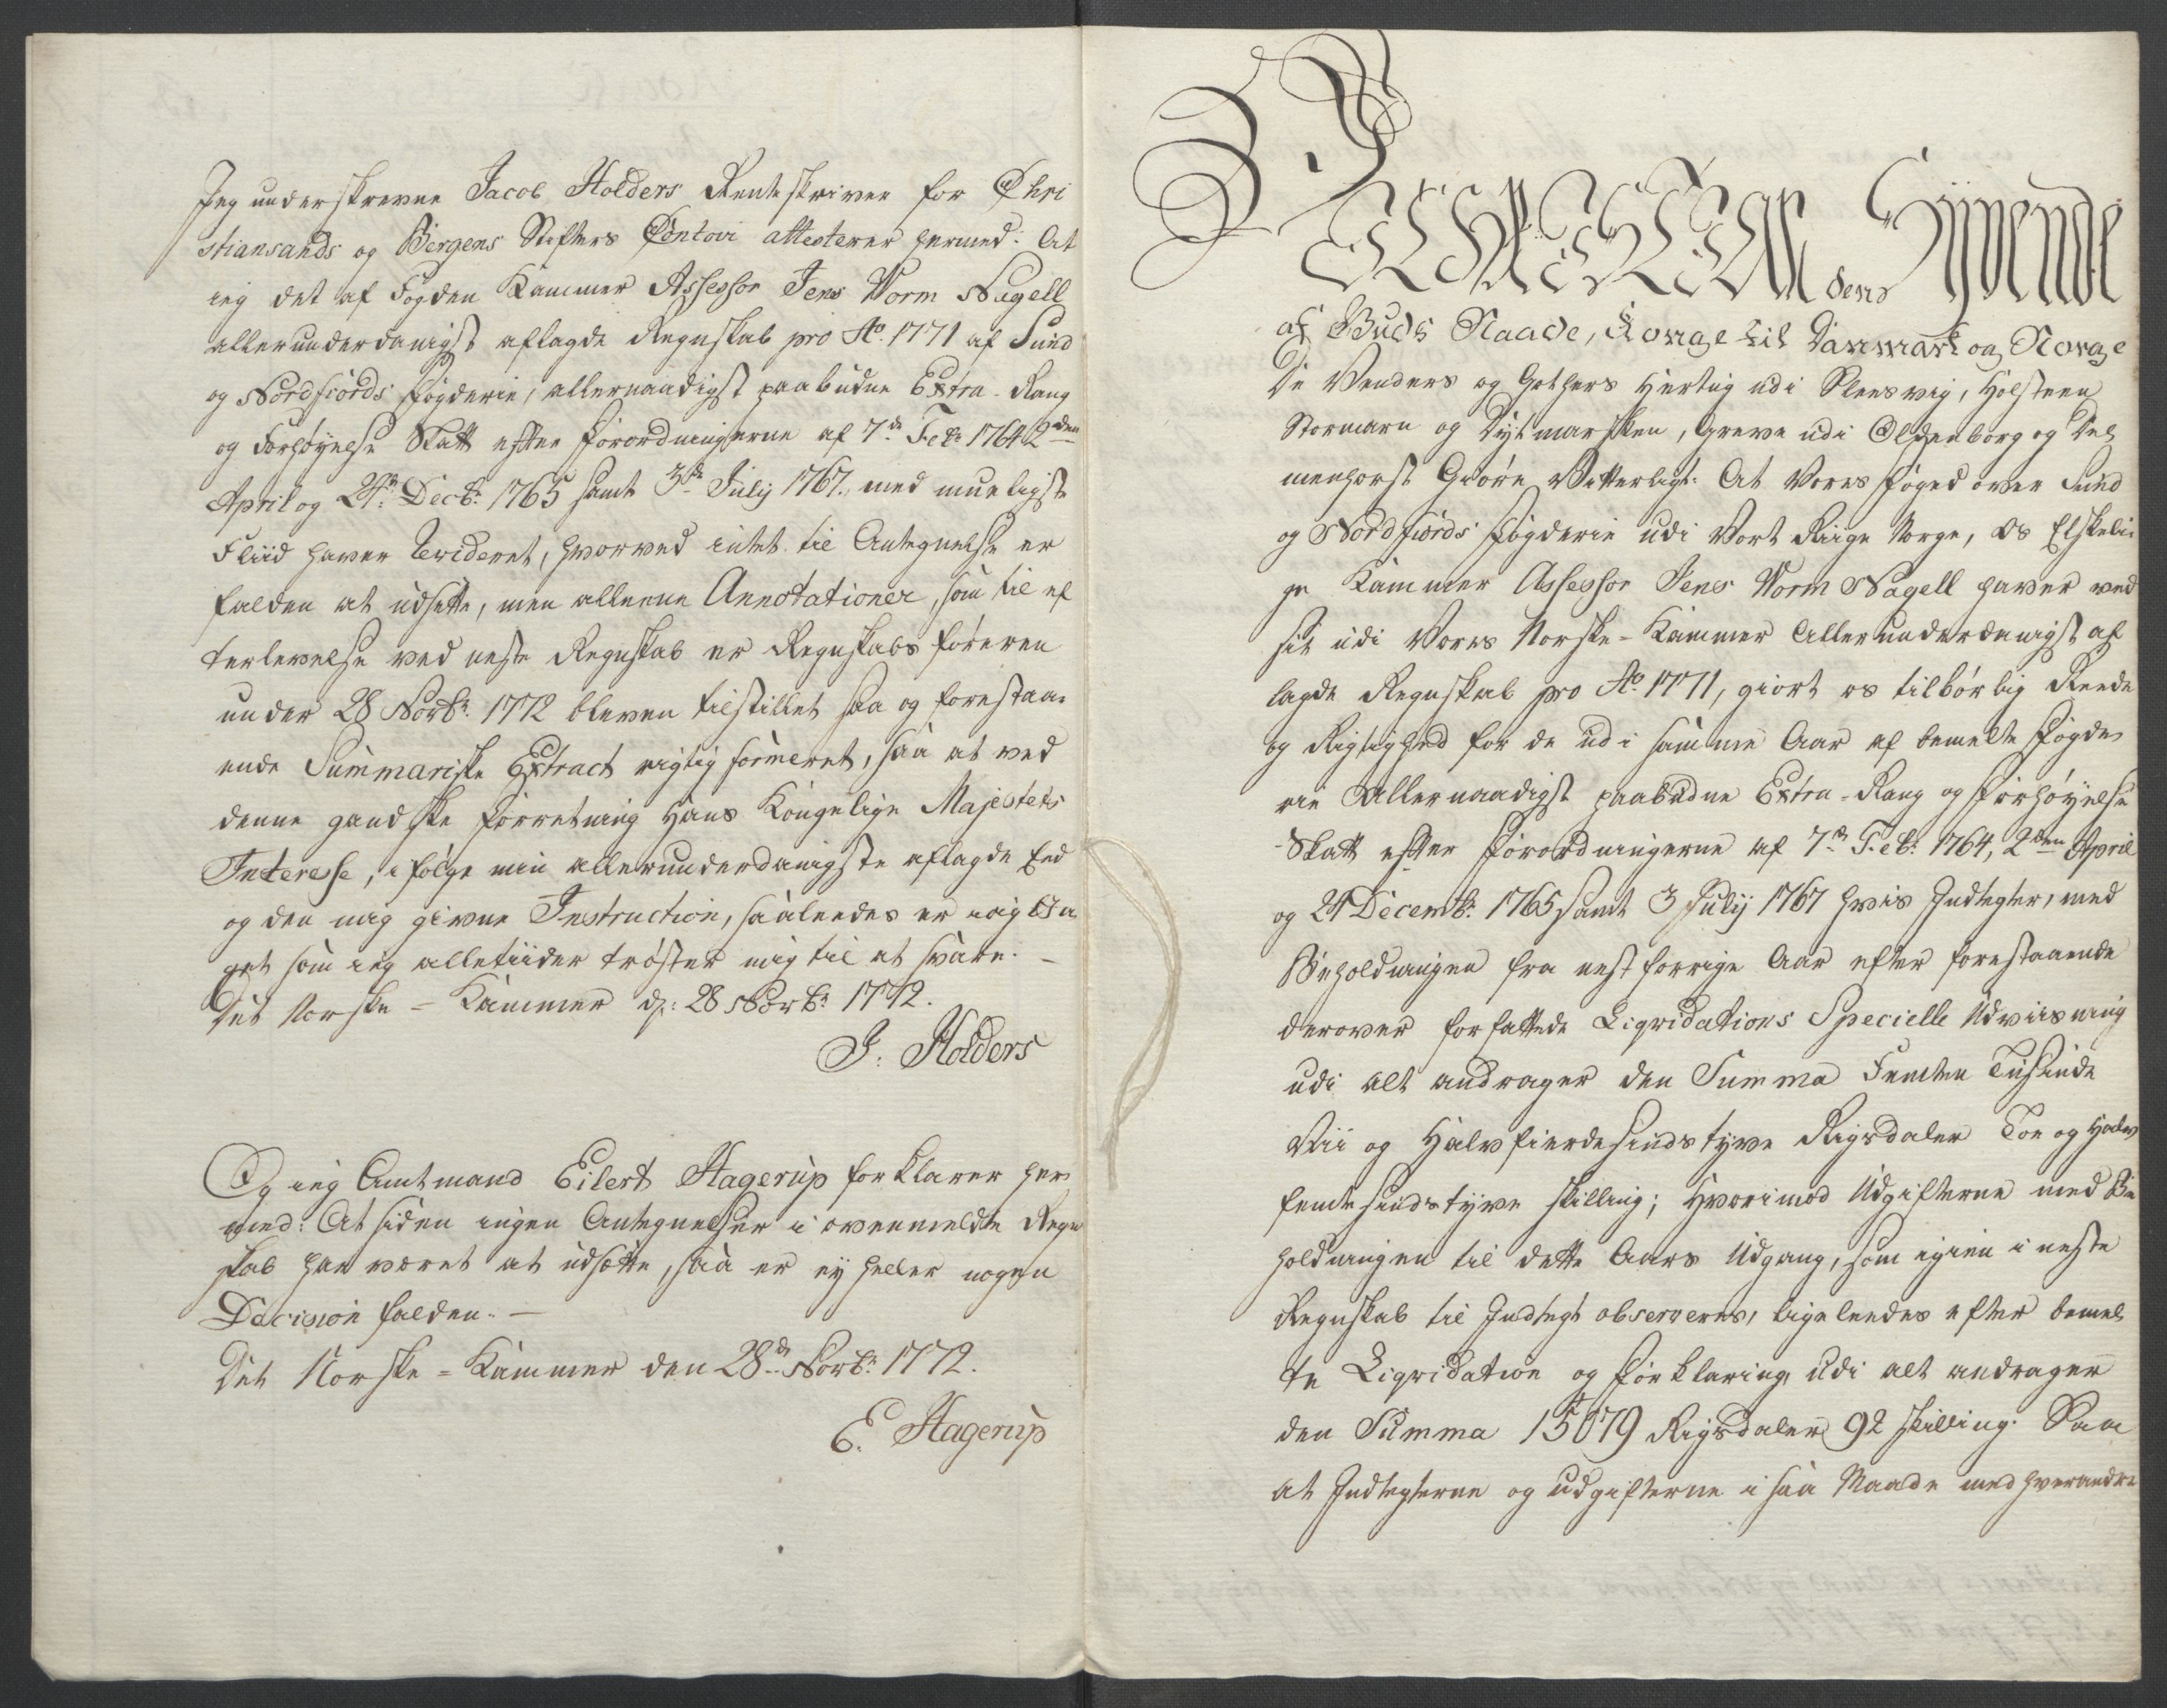 Jeg underskrevne Jacob Holders Renteskriver for Chri
stiansands og Bergens Stifters Contoir attesterer hermed: At
ieg det af Fogden Kammer Assessor Jens Worm Nagell
allerunderdanigst aflagde Regnskab pro Ao. 1771 af Sund
og Nordfiords Fogderie, allernaadigst paabudne Extra-Rang
og Forhøyelse Skatt efter Forordningerne af 7de Feb: 1764 2den
April og 24de Decbr: 1765 samt 3de July 1767. med mueligste
Fliid haver Revideret, hvorved intet til Antegnelse er
falden at udsette, men alleene Annotationer, som til ef
terlevelse ved neste Regnskab er Regnskabs føreren
under 28 Novbr: 1772 bleven tilstillet saa og forestaa-
ende Summariske Extract rigtig formeret, saa at ved
denne gandske Forretning Hans Kongelige Majestets
Interesse, i følge min allerunderdanigste aflagde Eed
og den mig givne Instruction, saaleedes er iagtta
get som ieg alletiider trøster mig til at svare. -
Det Norske-Kammer d: 28 Novbr: 1772.
J. Holders
Og ieg Amtmand Eilert Hagerup forklarer her
med: At siden ingen Antegnelser i ovenmeldte Regn
skab har været at udsætte, saa er ey heller nogen
Decision falden. -
Det Norske-Kammer den 28de Novbr: 1772.
E. Hagerup
CHRISTIAN den Syvende
af Guds Naade, Konge til Danmark og Norge
De Venders og Gothers Hertug udi Slesvig, Holsteen
Stormarn og Dytmarsken, Greve udi Oldenborg og Del
menhorst Giøre Vitterligt: At Vores Foged over Sund
og Nordfiords Fogderie udi Vort Riige Norge, Os Elskeli-
ge Kammer Assessor Jens Worm Nagell haver ved
sit udi Vores Norske-Kammer Allerunderdanigst af
lagde Regnskab pro Ao. 1771, giort os tilbørlig Reede
og Rigtighed for de udi samme Aar af bemelte Fogde
rie Allernaadigst paabudne Extra-Rang og Forhøyelse
Skatt efter Forordningerne af 7de Feb: 1764, 2den April
og 24 Decembr: 1765 samt 3 July 1767 hvis Indtegter, med
Beholdningen fra nestforrige Aar efter forestaaende
derover forfattede Liqvidations Specielle Udviisning
udi alt andrager den Summa Femten Tusinde
Nii og Halvfierdesindstyve Rigsdaler Toe og Halv
femtesindstyve skilling; Hvorimod Udgifterne med Be
holdningen til dette Aars Udgang, som igien i neste
Regnskab til Indtegt observeres, ligeleedes efter bemel
te Liqvidation og Forklaring, udi alt andrager
den Summa 15079 Rigsdaler 92 skilling. Saa
at Indtegterne og Udgifterne i saa Maade med hverandre